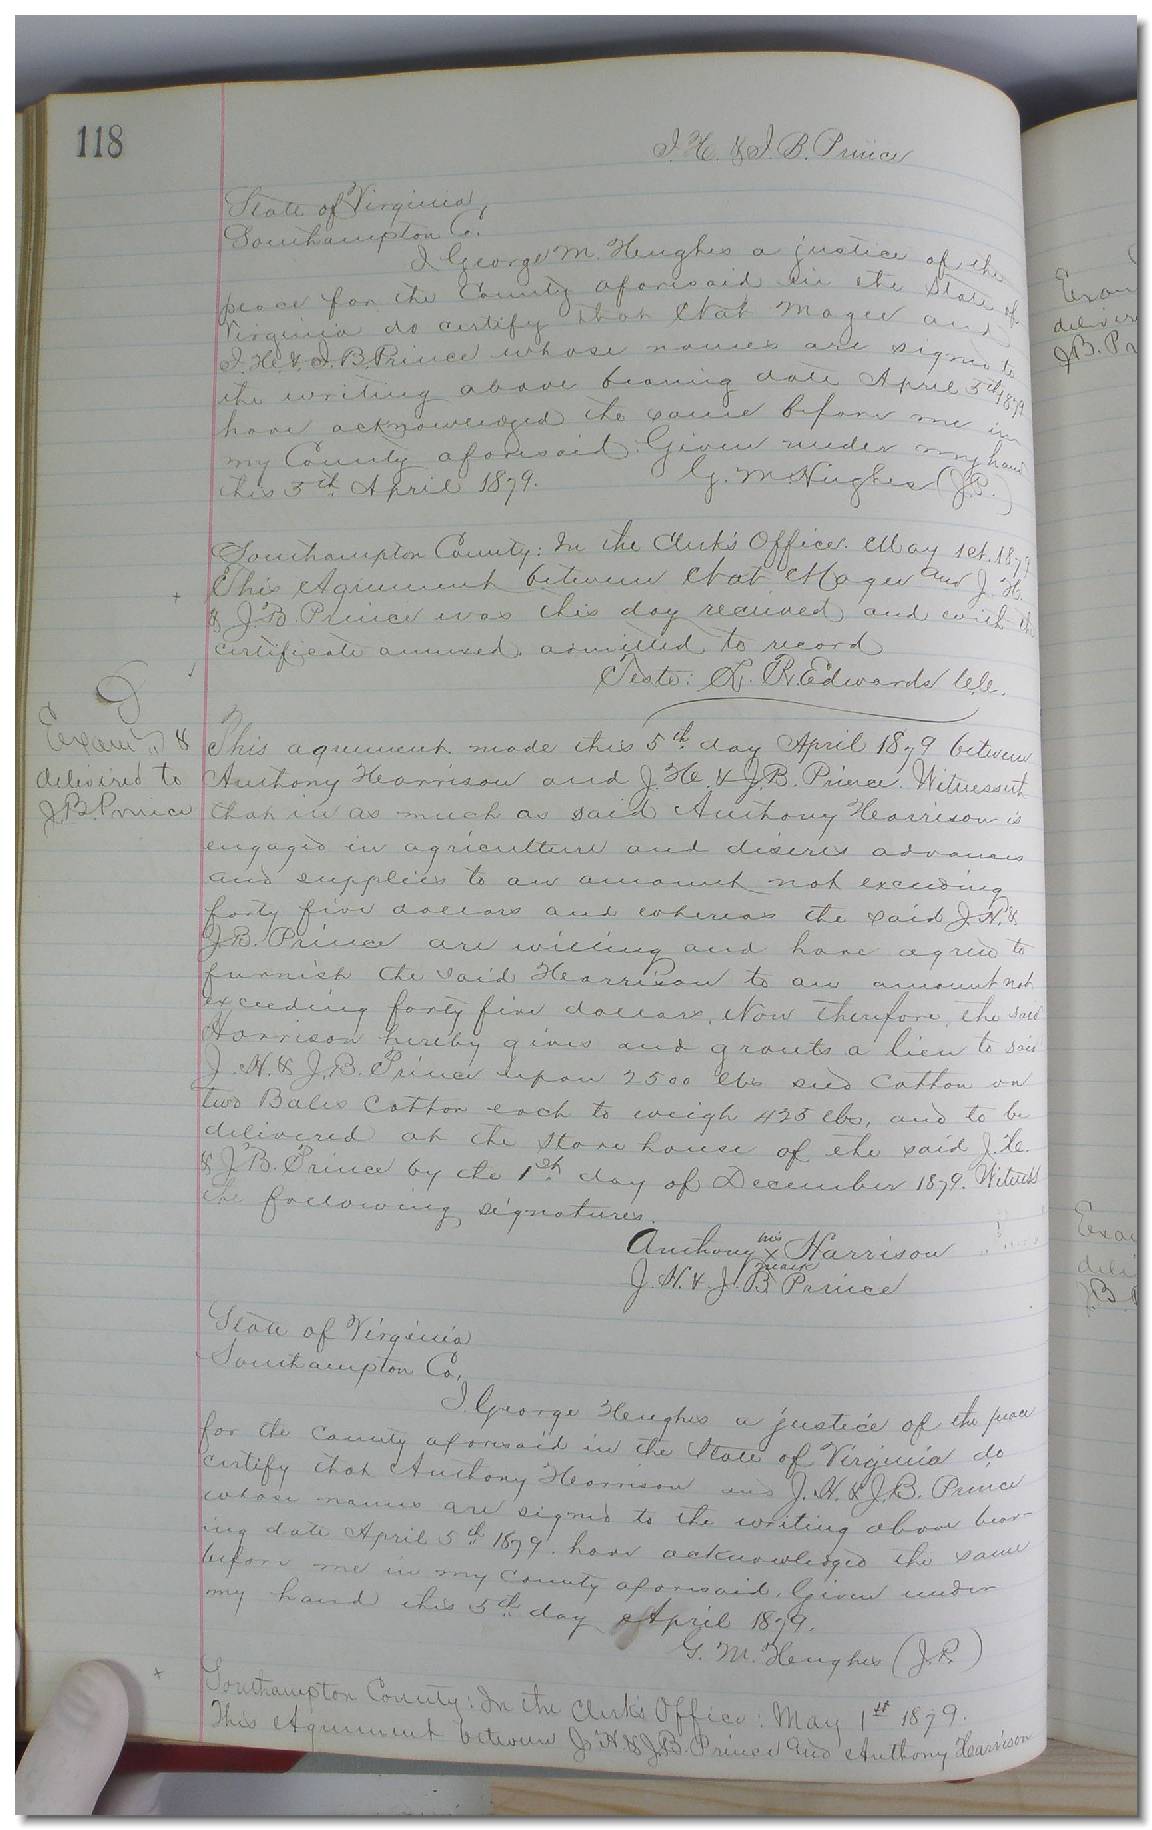 118
J. H. & J. B. Prince
State of Virginia,
Southampton Co.
I George M. Hughes a justice of the
peace for the County aforesaid in the State of
Virginia do certify that Nat Magee and
J. H. & J. B. Prince whose names are signed to
the writing above bearing date April 5th 1879
have acknowledged the same before me in
my County aforesaid. Given under my hand
this 5th April 1879.
G. M. Hughes (J.P.)
Southampton County: In the Clerk's Office. May 1st. 1879
This Agreement between Nat Magee and J. H.
& J. B. Prince was this day received and with the
certificate annexed, admitted to record
Teste: L. R. Edwards C.C.
Exam'd &
delivered to
J. B. Prince
This agreement made this 5th day April 1879 between
Anthony Harrison and J. H. & J. B. Prince. Witnesseth
that in as much as said Anthony Harrison is
engaged in agriculture and desires advances
and supplies to an amount not exceeding
forty five dollars and whereas the said J. H. &
J. B. Prince are willing and have agreed to
furnish the said Harrison to an amount not
exceeding forty five dollars. Now therefore, the said
Harrison hereby gives and grants a lien to said
J. H. & J. B. Prince upon 2500 lbs seed Cotton or
two Bales Cotton each to weigh 425 lbs, and to be
delivered at the store house of the said J. H.
& J. B. Prince by the 1st day of December 1879. Witness
the following signatures.
Anthony his x mark Harrison
J. H. & J. B. Prince
State of Virginia
Southampton Co.
I George Hughes a justice of the peace
for the County aforesaid in the State of Virginia do
certify that Anthony Harrison and J. H. & J. B. Prince
whose names are signed to the writing above bear-
ing date April 5th 1879. have acknowledged the same
before me in my County aforesaid. Given under
my hand this 5th day April 1879.
G. M. Hughes (J.P.)
Southampton County: In the Clerk's Office: May 1st 1879.
This Agreement between J. H. & J. B. Prince and Anthony Harrison